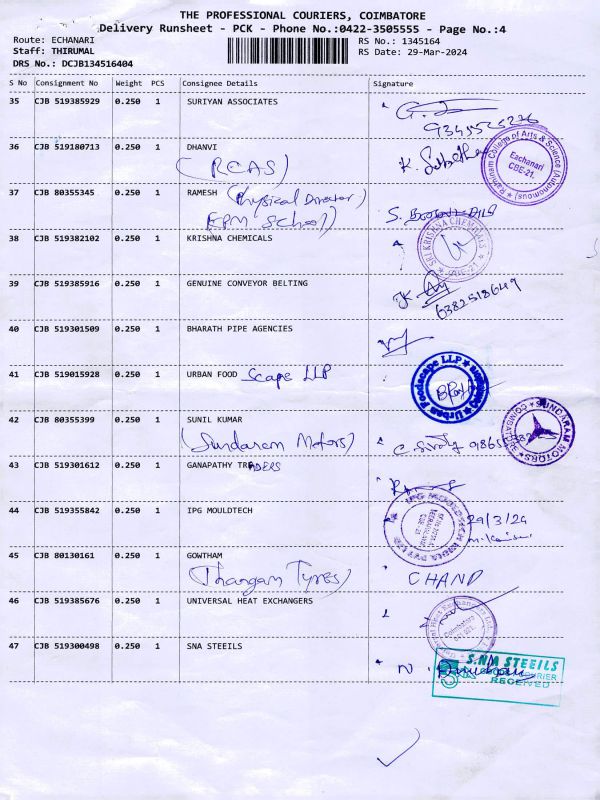 THE PROFESSIONAL COURIERS, COIMBATORE
Delivery Runsheet - PCK - Phone No.:0422-3505555 - Page No.:4
Route: ECHANARI
RS No.: 1345164
Staff: THIRUMAL
RS Date: 29-Mar-2024
DRS No.: DCJB134516404
S No Consignment No Weight PCS Consignee Details Signature
35 CJB 519385929 0.250 1 SURIYAN ASSOCIATES
36 CJB 519180713 0.250 1 DHANVI
(RCAS)
Rathinam College of Arts & Science (Autonomous)
Eachanari
CBE-21.
37 CJB 80355345 0.250 1 RAMESH (Physical Director)
(EPM School)
38 CJB 519382102 0.250 1 KRISHNA CHEMICALS
SRI KRISHNA CHEMICALS
CBE-21
39 CJB 519385916 0.250 1 GENUINE CONVEYOR BELTING
6382518649
40 CJB 519301509 0.250 1 BHARATH PIPE AGENCIES
41 CJB 519015928 0.250 1 URBAN FOOD Scape LLP
Urban Foodscape LLP
42 CJB 80355399 0.250 1 SUNIL KUMAR
(Sundaram Motors)
SUNDARAM MOTORS
43 CJB 519301612 0.250 1 GANAPATHY TRADERS
44 CJB 519355842 0.250 1 IPG MOULDTECH
IPG MOULDTECH INDIA PVT LTD
29/3/24
45 CJB 80130161 0.250 1 GOWTHAM
(Thangam Tyres)
CHAND
46 CJB 519385676 0.250 1 UNIVERSAL HEAT EXCHANGERS
Coimbatore
47 CJB 519300498 0.250 1 SNA STEEILS
S.NM STEEILS
COURIER
RECEIVED